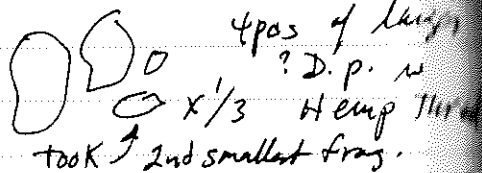 4pcs of large
? D.p. w
x 1/3 Hemp thread
took 2nd smallest frag.